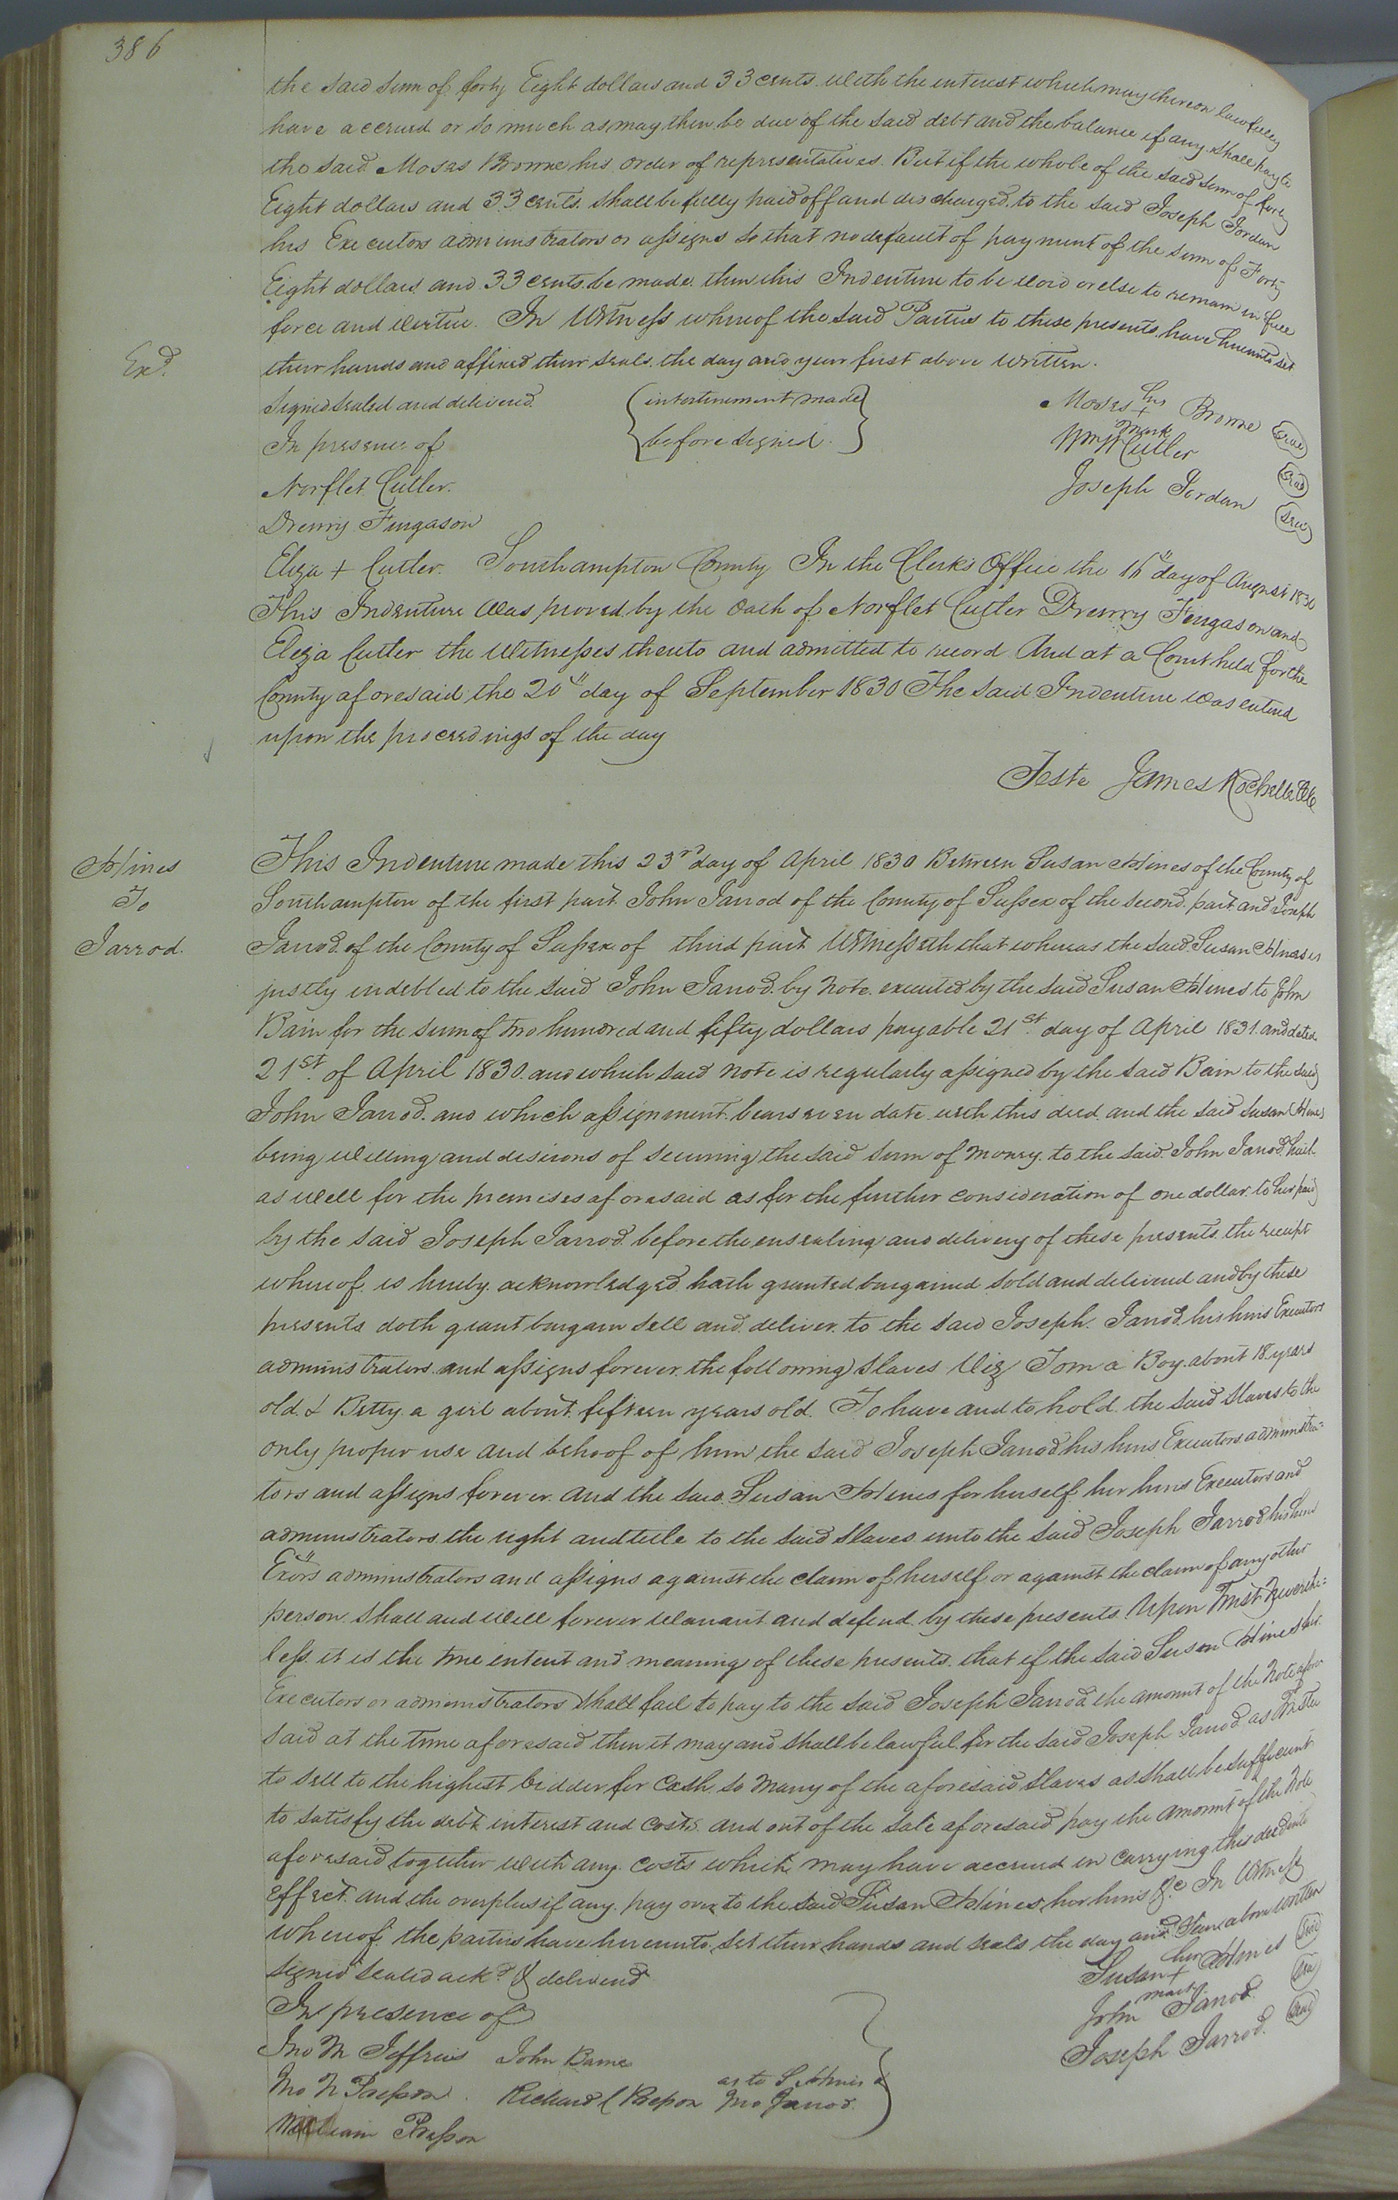 386
the said sum of forty Eight dollars and 33 cents with the interest which may thereon lawfully
have accrued or so much as may then be due of the said debt and the balance if any shall pay to
the said Moses Browne his order of representatives. But if the whole of the said sum of forty
Eight dollars and 33 cents shall be fully paid off and discharged to the said Joseph Jordan
his Executors administrators or assigns so that no default of payment of the sum of Forty
Eight dollars and 33 cents be made then this Indenture to be void or else to remain in full
force and virtue. In Witness whereof the said Parties to these presents have hereunto set
Exd.
their hands and affixed their seals the day and year first above written.
Signed sealed and delivered
In presence of
Norflet Cutler.
Drewry Furgason
Eliza + Cutler.
(interlinement made
before signed.)
Moses his + mark Browne seal
Wm W Cutler seal
Joseph Jordan seal
Southampton County In the Clerk's Office the 16th day of August 1830
This Indenture was proved by the oath of Norflet Cutler Drewry Furgason and
Eliza Cutler the Witnesses thereto and admitted to record And at a Court held for the
County aforesaid the 20th day of September 1830 The said Indenture was entered
upon the proceedings of the day
Teste James Rochelle Clk
Hines
To
Jarrod.
This Indenture made this 23rd day of April 1830 Between Susan Hines of the County of
Southampton of the first part John Jarrod of the County of Sussex of the second part and Joseph
Jarrod of the County of Sussex of third part Witnesseth that whereas the said Susan Hines is
justly indebted to the said John Jarrod by Note executed by the said Susan Hines to John
Bain for the sum of two hundred and fifty dollars payable 21st day of April 1831 and dated
21st of April 1830 and which said note is regularly assigned by the said Bain to the said
John Jarrod and which assignment bears even date with this deed and the said Susan Hines
being willing and desirous of securing the said sum of money to the said John Jarrod hath
as well for the premises aforesaid as for the further consideration of one dollar to her paid
by the said Joseph Jarrod before the ensealing and delivery of these presents the receipt
whereof is hereby acknowledged hath granted bargained sold and delivered and by these
presents doth grant bargain sell and deliver to the said Joseph Jarrod his heirs Executors
administrators and assigns forever the following slaves Viz Tom a Boy about 18 years
old & Betty a girl about fifteen years old. To have and to hold the said slaves to the
only proper use and behoof of him the said Joseph Jarrod his heirs Executors administra=
tors and assigns forever. And the said Susan Hines for herself her heirs Executors and
administrators the right and title to the said slaves unto the said Joseph Jarrod his heirs
Exors administrators and assigns against the claim of herself or against the claim of any other
person shall and will forever warrant and defend by these presents Upon Trust Neverthe=
less it is the true intent and meaning of these presents that if the said Susan Hines her
Executors or administrators shall fail to pay to the said Joseph Jarrod the amount of the Note afore
said at the time aforesaid then it may and shall be lawful for the said Joseph Jarrod as Trustee
to sell to the highest bidder for Cash so many of the aforesaid slaves as shall be sufficient
to satisfy the debt interest and costs and out of the sale aforesaid pay the amount of the Note
aforesaid together with any costs which may have accrued in carrying this deed into
effect and the overplus if any pay over to the said Susan Hines her heirs &c In Witness
whereof the parties have hereunto set their hands and seals the day and year above written
Signed sealed ackd & delivered
In presence of
Jno M Jeffries John Barne
Jno N Presson. Richard C Presson as to S Hines & Jno Jarrod.
William Presson
Susan her + mark Hines seal
John Jarrod. seal
Joseph Jarrod. seal